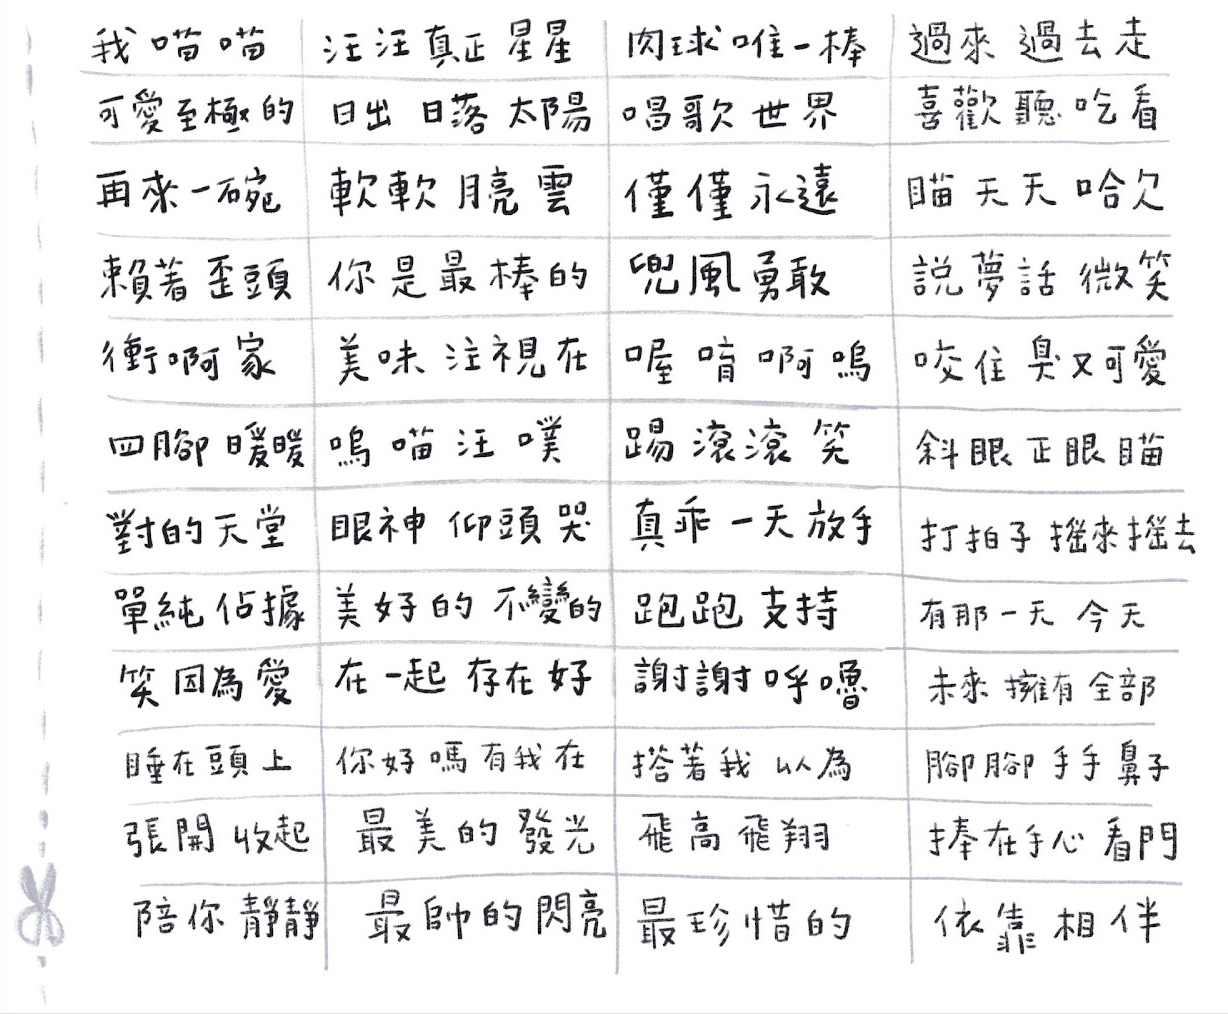 我 喵 喵 汪 汪 真正 星星 肉球 唯一棒 過來 過去 走
可愛至極的 日出 日落 太陽 唱歌 世界 喜歡 聽 吃 看
再來一碗 軟軟 月亮 雲 僅僅 永遠 瞄 天天 哈欠
賴著 歪頭 你是最棒的 兜風 勇敢 說夢話 微笑
衝 啊 家 美味 注視 在 喔 唷 啊 嗚 咬住 臭又可愛
四腳 暖暖 嗚 喵 汪 噗 踢 滾滾 笑 斜眼 正眼 瞄
對的 天堂 眼神 仰頭 哭 真乖 一天 放手 打拍子 搖來搖去
單純 佔據 美好的 不變的 跑跑 支持 有那一天 今天
笑 因為 愛 在一起 存在 好 謝謝 呼嚕 未來 擁有 全部
睡在頭上 你好嗎 有我在 搭著我 以為 腳腳 手手 鼻子
張開 收起 最美的 發光 飛高 飛翔 捧在手心 看門
陪你 靜靜 最帥的 閃亮 最珍惜的 依靠 相伴